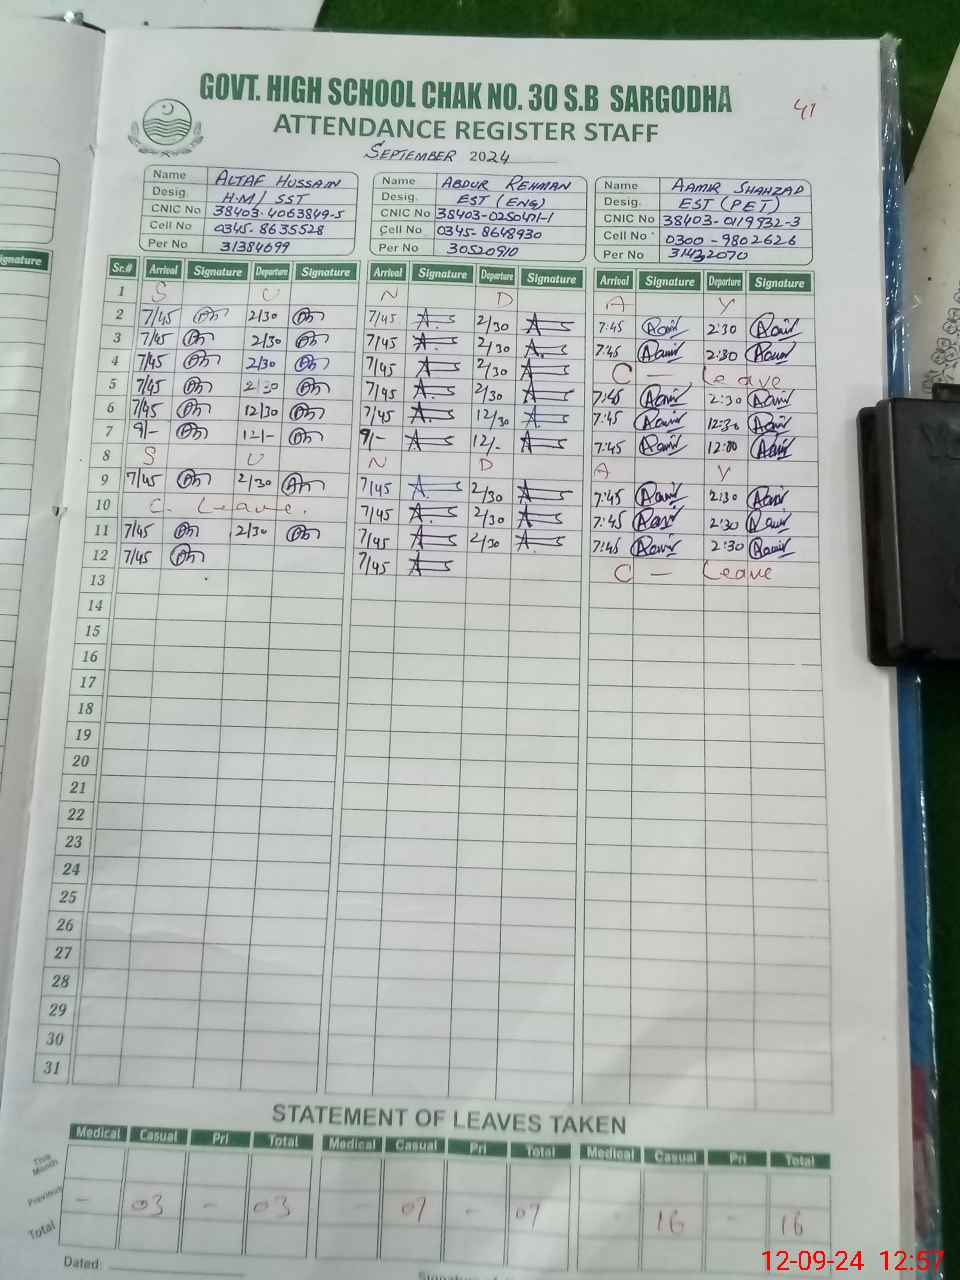 GOVT. HIGH SCHOOL CHAK NO. 30 S.B SARGODHA
41
ATTENDANCE REGISTER STAFF
SEPTEMBER 2024
Name ALTAF HUSSAIN Name ABDUR REHMAN Name AAMIR SHAHZAD
Desig. H.M/ SST Desig. EST (ENG) Desig. EST (PET)
CNIC No 38403-4063849-5 CNIC No 38403-0250471-1 CNIC No 38403-0119932-3
Cell No 0345-8635528 Cell No 0345-8648930 Cell No 0300-9802626
Per No 31384699 Per No 30520910 Per No 31432070
ignature
Sr.# Arrival Signature Departure Signature Arrival Signature Departure Signature Arrival Signature Departure Signature
1 S U N D A Y
2 7/45 2/30 7/45 2/30 7:45 Aamir 2:30 Aamir
3 7/45 2/30 7/45 2/30 7:45 Aamir 2:30 Aamir
4 7/45 2/30 7/45 2/30 C — Leave
5 7/45 2/30 7/45 2/30 7:45 Aamir 2:30 Aamir
6 7/45 12/30 7/45 12/30 7:45 Aamir 12:30 Aamir
7 9/- 12/- 9/- 12/- 7:45 Aamir 12:00 Aamir
8 S U N D A Y
9 7/45 2/30 7/45 2/30 7:45 Aamir 2:30 Aamir
10 C. Leave. 7/45 2/30 7:45 Aamir 2:30 Aamir
11 7/45 2/30 7/45 2/30 7:45 Aamir 2:30 Aamir
12 7/45 7/45 C — Leave
13
14
15
16
17
18
19
20
21
22
23
24
25
26
27
28
29
30
31
STATEMENT OF LEAVES TAKEN
Medical Casual Pri Total Medical Casual Pri Total Medical Casual Pri Total
This Month
Previous - 03 - 03 - 07 - 07 - 16 - 16
Total
Dated:
12-09-24 12:57